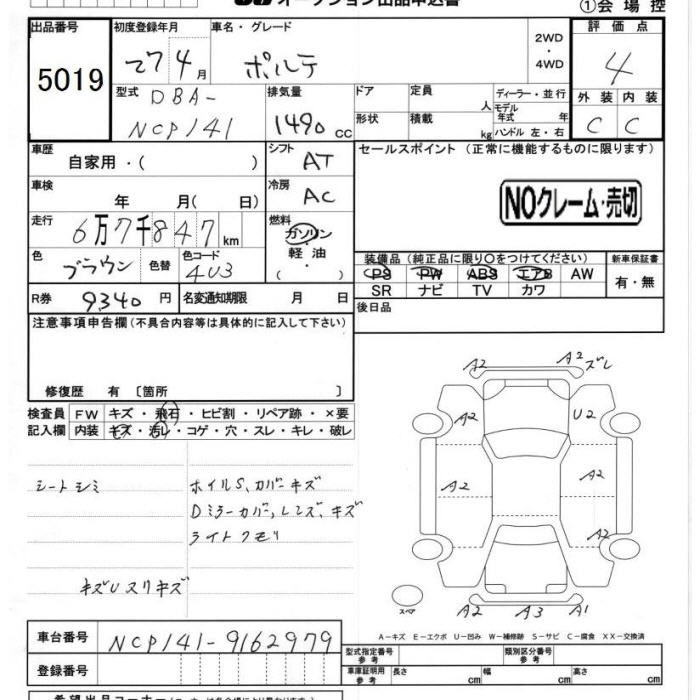 オークション出品申込書
①会場控
出品番号 初度登録年月 車名・グレード 2WD・4WD 評価点
5019 27 4月 ポルテ 4
型式 排気量 ドア 定員 人 ディーラー・並行 外装 内装
DBA-
NCP141 1490 cc 形状 積載 kg モデル年式 年 ハンドル 左・右 C C
車歴 シフト セールスポイント (正常に機能するものに限ります)
自家用・( ) AT
車検 冷房
年 月( 日) AC NOクレーム・売切
走行 燃料
6万7千847km ガソリン
軽油
・( )
色 色替 色コード
ブラウン 4U3
装備品 (純正品に限り○をつけてください) 新車保証書
PS PW ABS エアB AW 有・無
SR ナビ TV カワ
R券 9340円 名変通知期限 月 日 後日品
注意事項申告欄(不具合内容等は具体的に記入して下さい)
修復歴 有 〔箇所 〕
検査員 FW キズ・飛石・ヒビ割・リペア跡・×要
記入欄 内装 キズ・汚レ・コゲ・穴・スレ・キレ・破レ
シートシミ ホイルS、カバーキズ
Dミラーカバー、レンズ、キズ
ライトクモリ
キズUスリキズ
A2 A2ズレ
A2 U2
A2 A2
A2
スペア A2 A3 A1
A-キズ E-エクボ U-凹み W-補修跡 S-サビ C-腐食 XX-交換済
車台番号 NCP141-9162979
登録番号
型式指定番号 参考 類別区分番号 参考
車庫証明用 参考 長さ cm 幅 cm 高さ cm